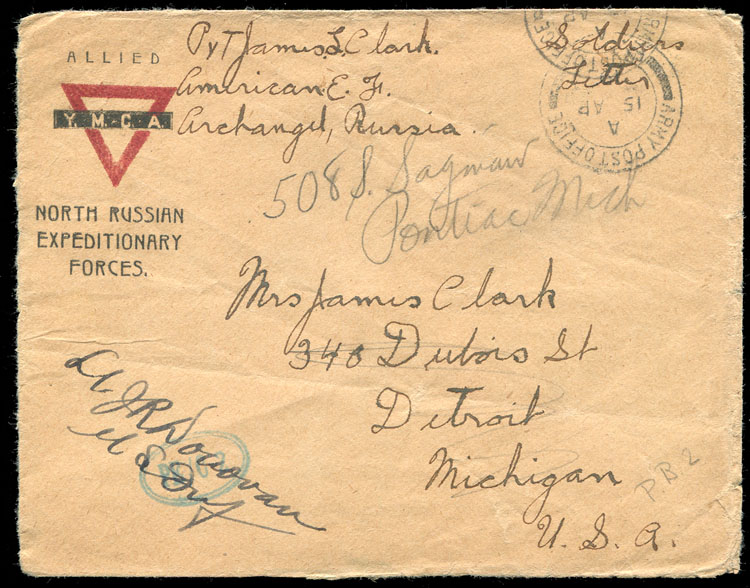 ALLIED
Y.M.C.A.
NORTH RUSSIAN
EXPEDITIONARY
FORCES.
Pvt James L. Clark.
American E. F.
Archangel, Russia
Soldiers
Letter
ARMY POST OFFICE
A
15 AP
508 S. Saginaw
Pontiac Mich
Mrs James Clark
340 Dubois St
Detroit
Michigan
U. S. A.
Lt. J R Donovan
U S Inf
P.B.2